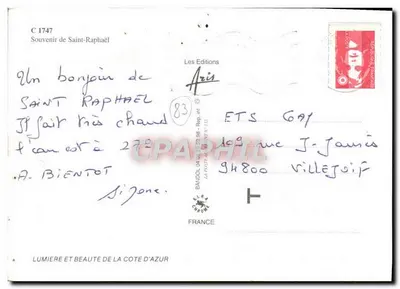 C 1747
Souvenir de Saint-Raphaël
Un bonjour de
SAINT RAPHAËL
Il fait très chaud
l'eau est à 27°
A. BIENTOT
Les Editions
Aris
83
ETS Gay
169 rue J-Jaurès
94800 VILLEJUIF
T
CPARAMA
FRANCE
LUMIERE ET BEAUTE DE LA COTE D'AZUR